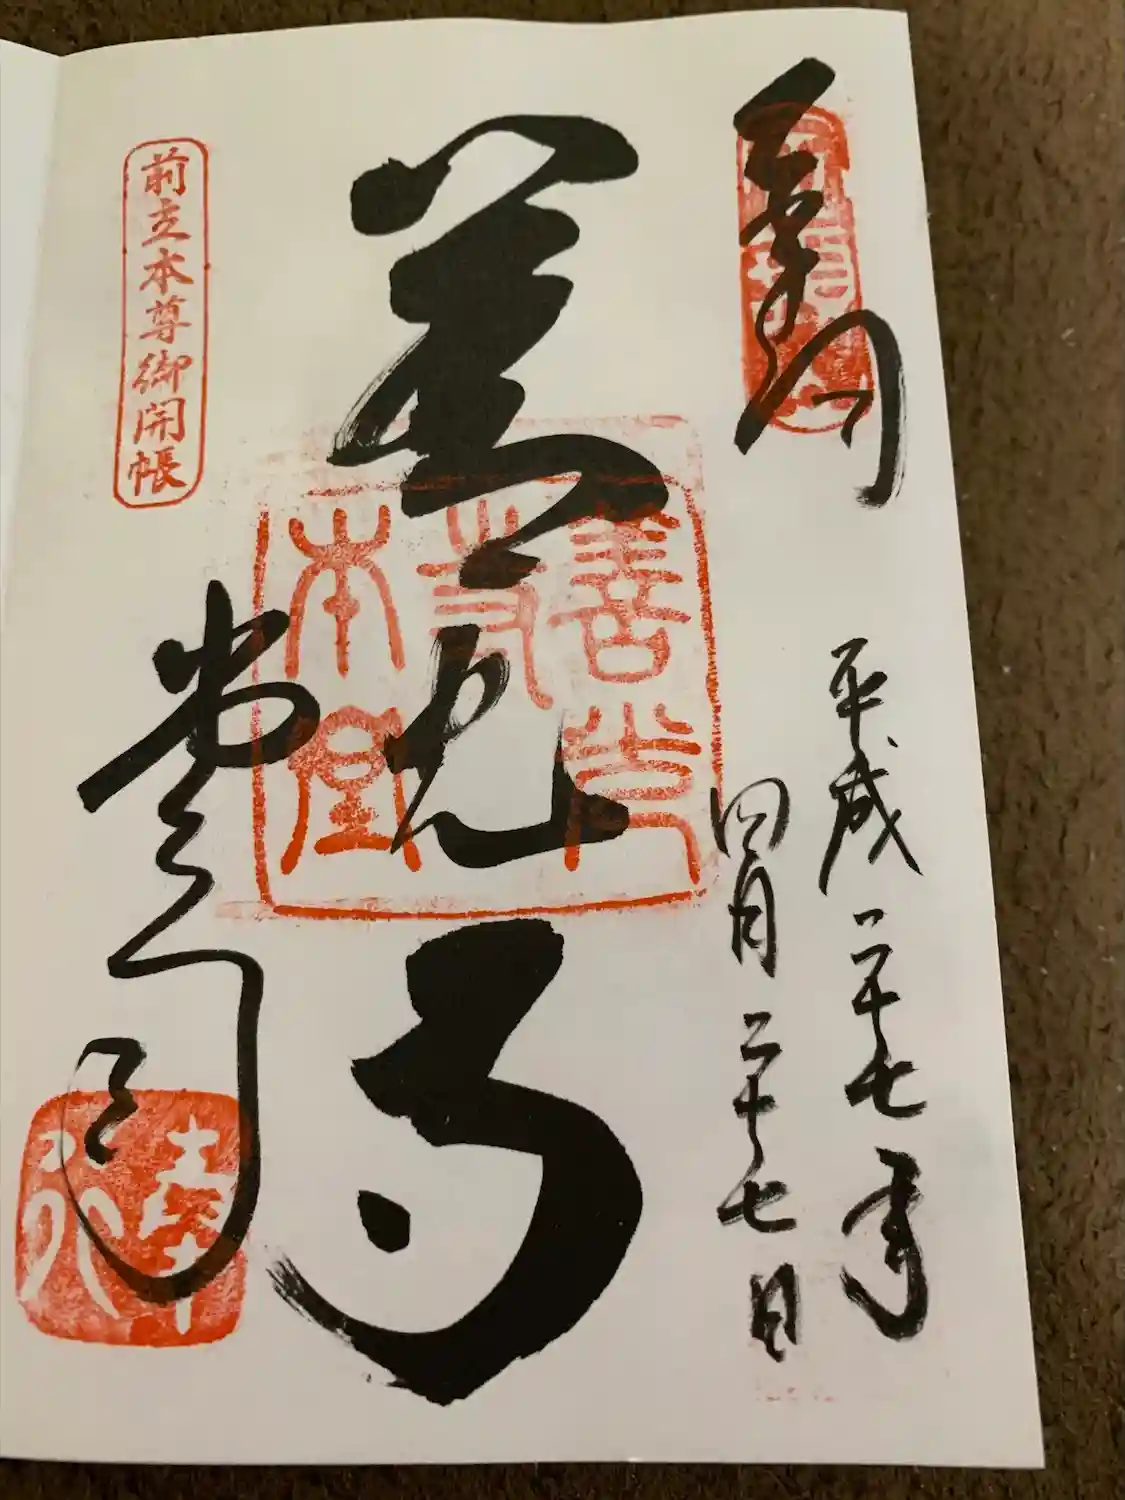 平成二十七年
四月二十七日
善光寺
堂司
善光
寺
本堂
前立本尊御開帳